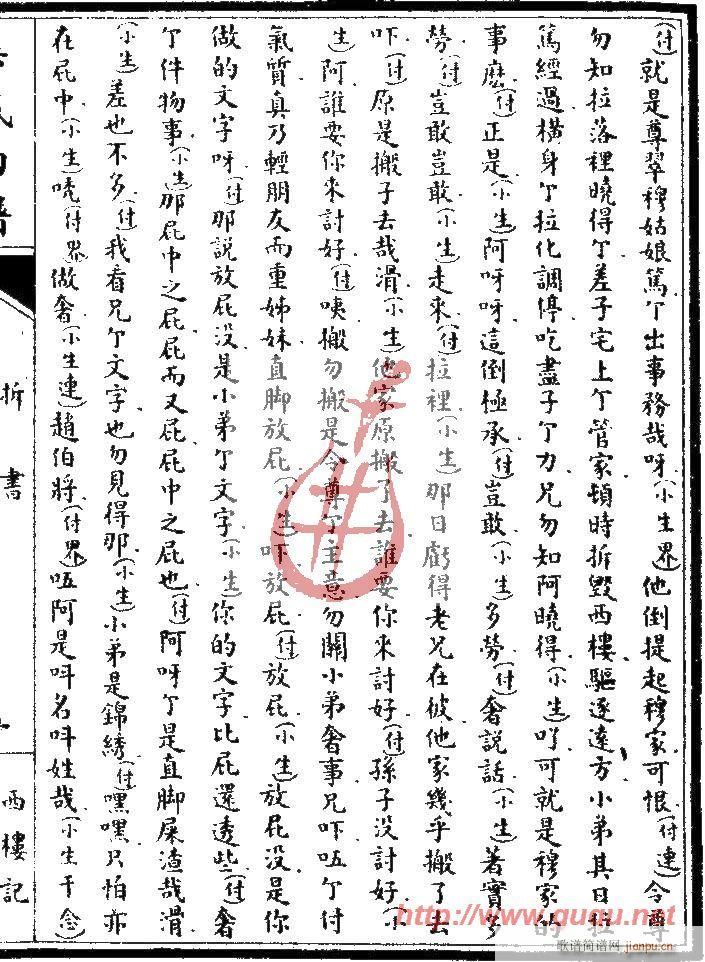 (付)就是尊翠穆姑娘篤个出事務哉呀(小生界)他倒提起穆家可恨(付連)令尊
勿知拉落裡曉得个差子宅上个管家頓時拆毀西樓驅逐遠方小弟其日拉
篤經過橫身个拉化調停吃盡子个力兄勿知阿曉得(小生)吖可就是穆家的
事麽(付)正是(小生)阿呀呀這倒極承(付)豈敢(小生)多勞(付)奢說話(小生)著實多
勞(付)豈敢豈敢(小生)走來(付)拉裡(小生)那日虧得老兄在彼他家幾乎搬了去
吓(付)原是搬子去哉滑(小生)他家原搬了去誰要你來討好(付)孫子沒討好(小
生)阿誰要你來討好(付)咦搬勿搬是令尊个主意勿關小弟奢事兄吓㕶个付
氣質真乃輕朋友而重姊妹直脚放屁(小生)吓放屁(付)放屁(小生)放屁沒是你
做的文字呀(付)那說放屁沒是小弟个文字(小生)你的文字比屁還透些(付)奢
个件物事(小生)那屁中之屁屁而又屁屁中之屁也(付)阿呀个是直脚屎渣哉滑
(小生)差也不多(付)我看兄个文字也勿見得那(小生)小弟是錦綉(付)嘿嘿只怕亦
在屁中(小生)唗(付界)做奢(小生連)趙伯將(付界)㕶阿是呌名呌姓哉(小生干念)
拆書
西樓記
http://www.qupu.net
歌谱简谱网
jianpu.cn